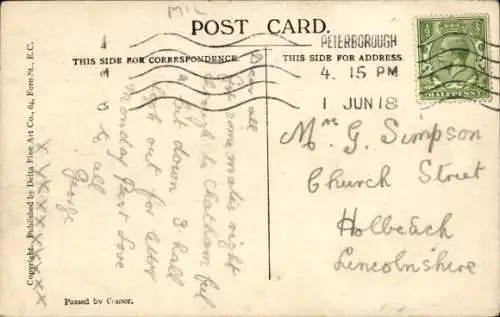 MIL
POST CARD.
THIS SIDE FOR CORRESPONDENCE.
THIS SIDE FOR ADDRESS.
PETERBOROUGH
4. 15 PM
1 JUN 18
HALFPENNY
Dear all
Got some mates right
through to Chatham feel
a bit down 3 hall
look out for letter
Monday Dear Love
to all
George
X X X X X X X X X X
Mrs G. Simpson
Church Street
Holbeach
Lincolnshire
Copyright. Published by Delta Fine Art Co., 64, Fore St., E.C.
Passed by Censor.